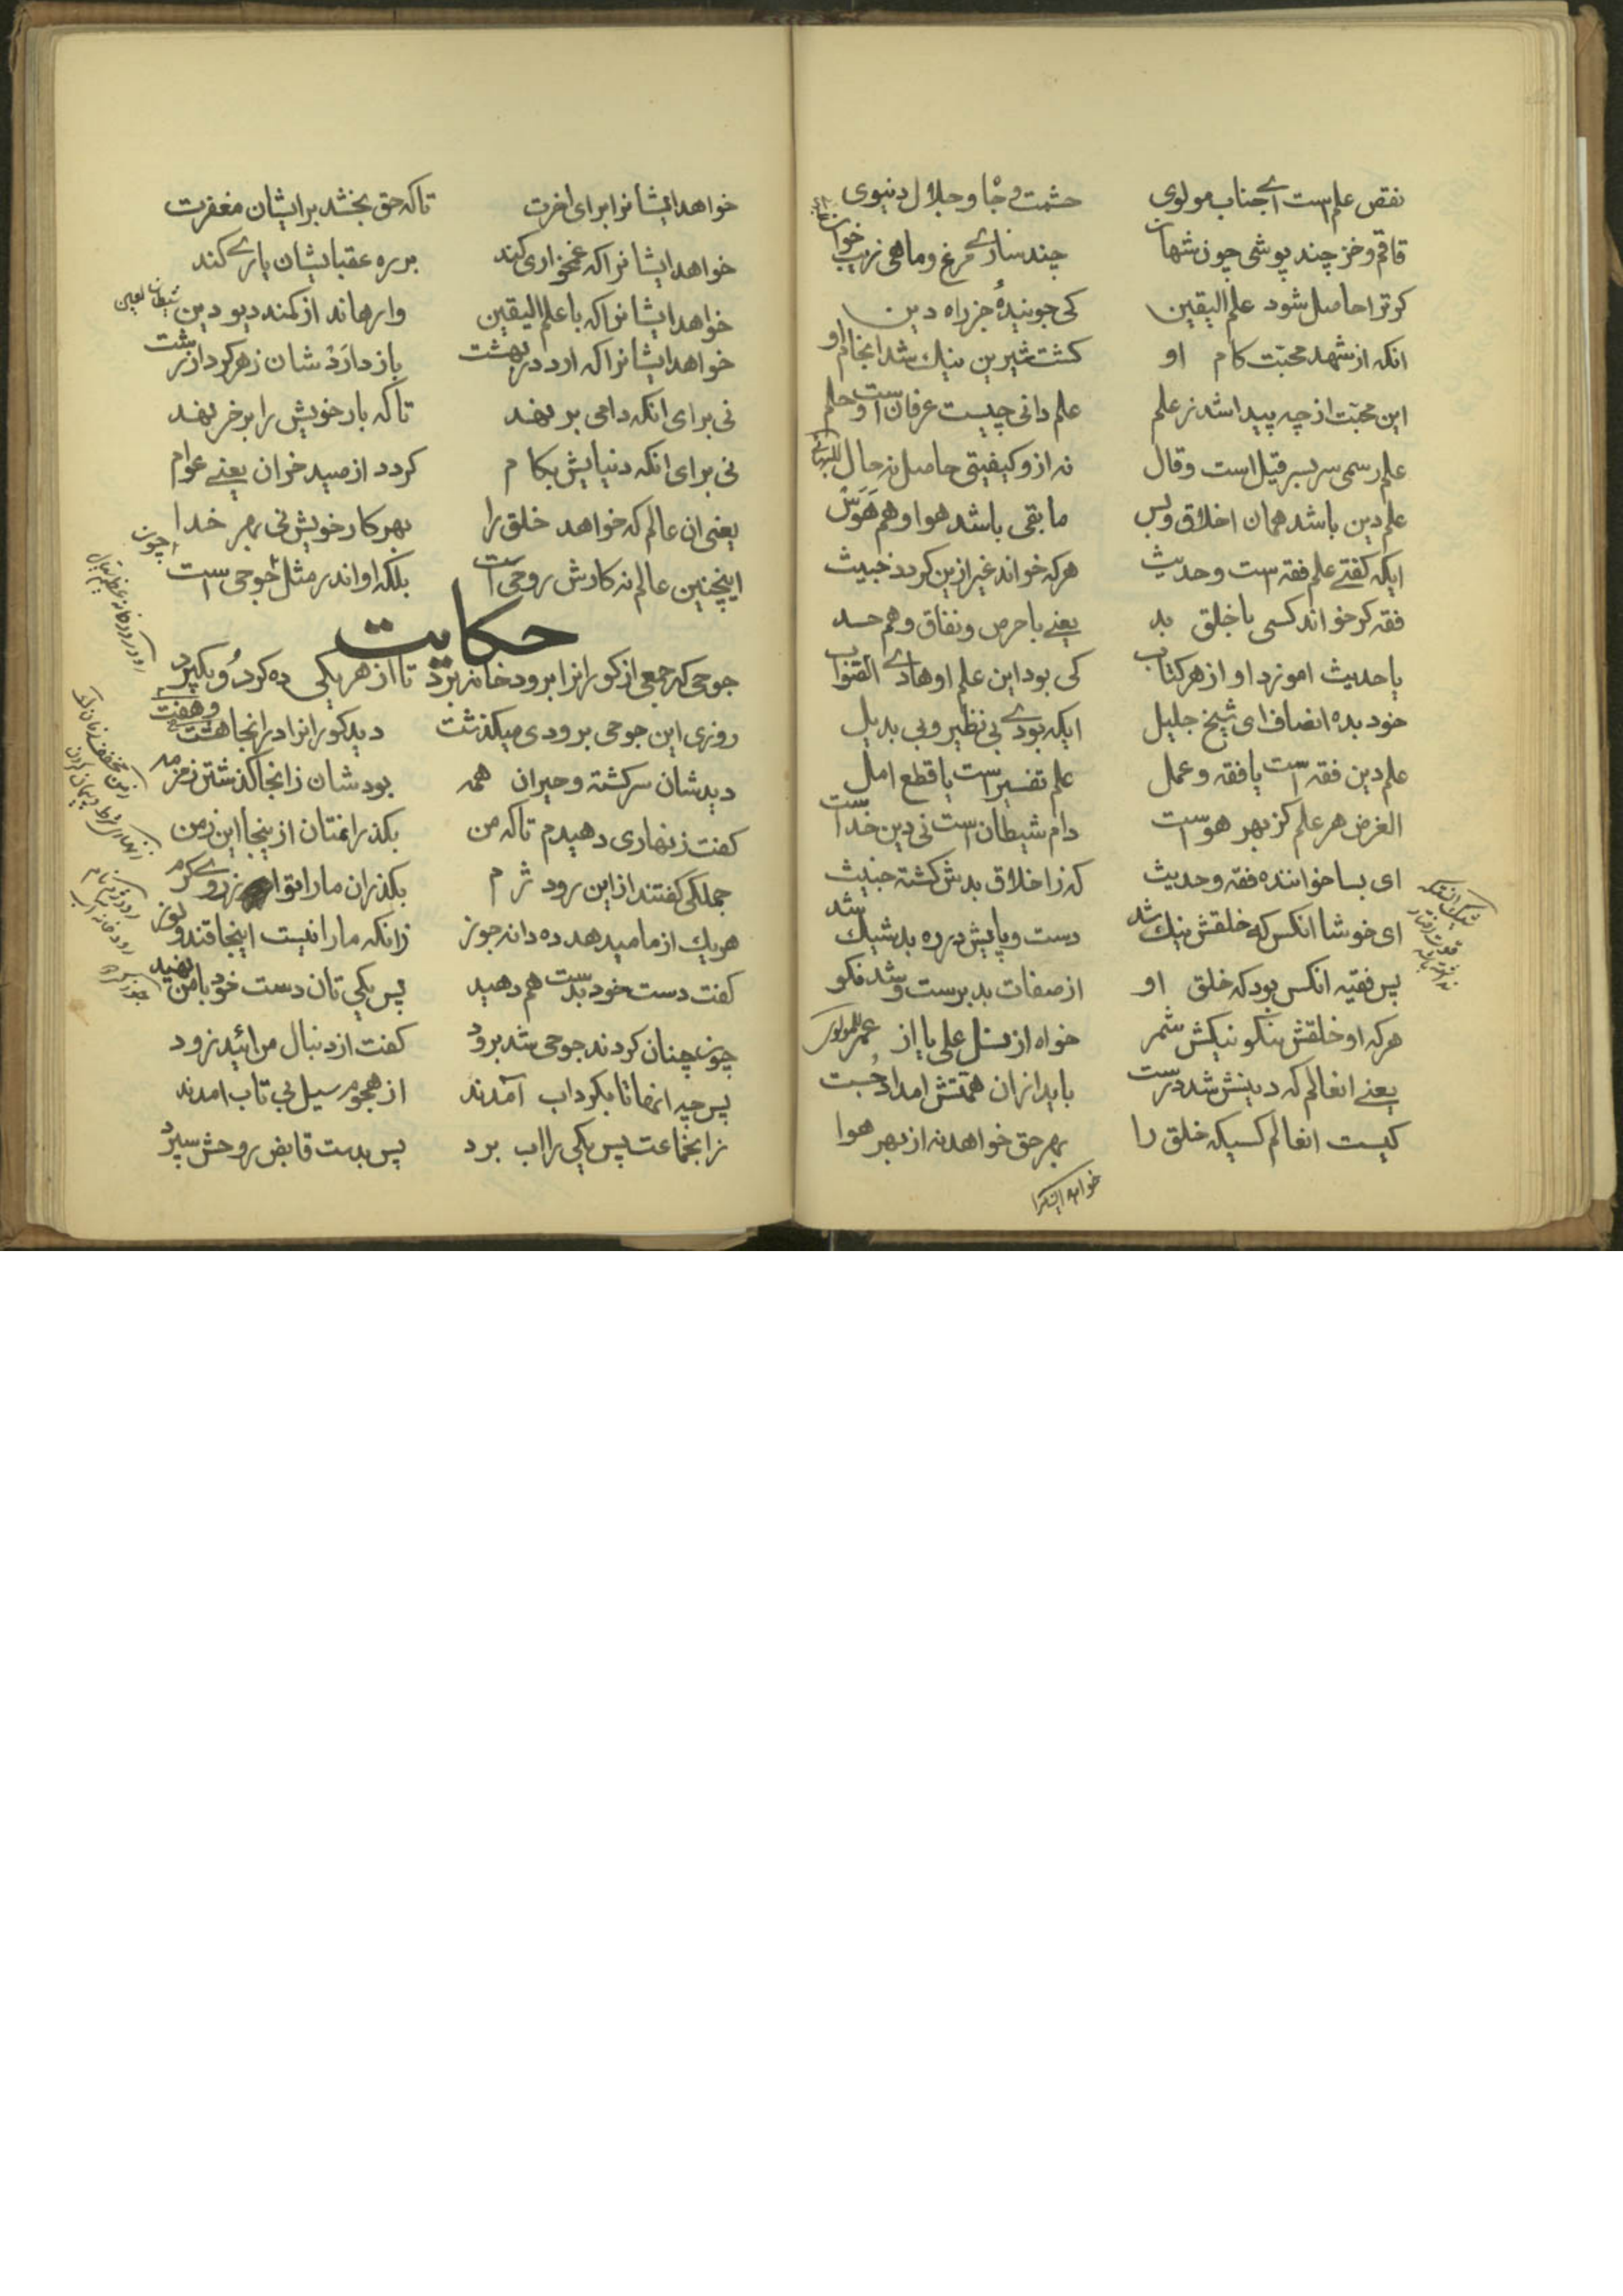 نقص علم است اے جناب مولوی حشمت و جاه و جلال دنیوی
قاقم و خز چند پوشی چون شهان چند سازے مرغ و ماهی زیب خوان
کر ترا حاصل شود علم الیقین کی جوئیدهٔ جز راه دین
انکه از شهد محبّت کام او کشت شیرین نیك شد انجام او
این محبّت از چه پیدا شد ز علم علم دانی چیست عرفان است و حلم
علم رسمی سر بسر قیل است وقال نه از و کیفیتی حاصل نه حال
علم دین باشد همان اخلاق وبس ما بقی باشد هوا وهم هَوَس
ایکه کفتے علم فقه ست وحدیث هرکه خواند غیر ازین کردد خبیث
فقه کر خواند کسی با خلق بد یعنے با حرص و نفاق وهم حسد
یا حدیث اموزد او از هر کتاب کی بود این علم او هادے الصّواب
خود بده انصاف ای شیخ جلیل ایکه بودے بی نظیر وبی بدیل
علم دین فقه است یا فقه و عمل علم تفسیر است یا قطع امل
الغرض هر علم کز بهر هوست دام شیطان است نی دین خداست
ای بسا خواننده فقه وحدیث که ز اخلاق بدش کشته خبیث
ای خوشا انکس که خلقش نیك شد دست و پایش در ره بد شیك شد
پس فقیه انکس بود که خلق او از صفات بد برست و شد نکو
هرکه او خلقش نکو نیکش شمر خواه از نسل علی یا از عمر
یعنے انعالم که دینش شد درست باید از ان همّتش امداد جُست
کیست انعالم کسیکه خلق را بهر حق خواهد نه از بهر هوا
خواهد ایشانرا
خواهد ایشانرا برای اخرت تاکه حق بخشد بر ایشان مغفرت
خواهد ایشانرا که غمخواری کند بر ره عقبایشان یارے کند
خواهد ایشانرا که با علم الیقین وارهاند از کمند دیو دین
خواهد ایشانرا که ارد در بهشت باز دارَدْشان ز هر کردار زشت
نی برای انکه دامی بر نهد تاکه بار خویش را بر خر نهد
نی برای انکه دنیایش بکام کردد از صید خران یعنے عوام
یعنی ان عالم که خواهد خلق را بهر کار خویش نی بهر خدا
اینچنین عالم نه کارش روحی است بلکه او اندر مثل چون جوحی است
حکایت
جوحی که جمعی از کورانرا برود خانه برد تا از هر یکی ده کردو بکیرد
روزی این جوحی برودی میکذشت دید کورانرا در انجا هشت و هفت
دیدشان سرکشته و حیران همه بودشان زانجا کذشتن زمزمه
کفت زنهاری دهیدم تاکه من بکذرانمتان ازینجا این زمن
جملکی کفتند از این رود ژرم بکذران مارا تو از روے کرم
هریك از ما میدهد ده دانه جوز زانکه مارا نیست اینجا قند و لوز
کفت دست خود بدست هم دهید پس یکی تان دست خود با من نهید
چون چنان کردند جوحی شد برود کفت از دنبال من ائید زود
پس چه انها تا بکرداب آمدند از هجوم سیل بی تاب امدند
زانجماعت پس یکی را اب برد پس بدست قابض روحش سپرد